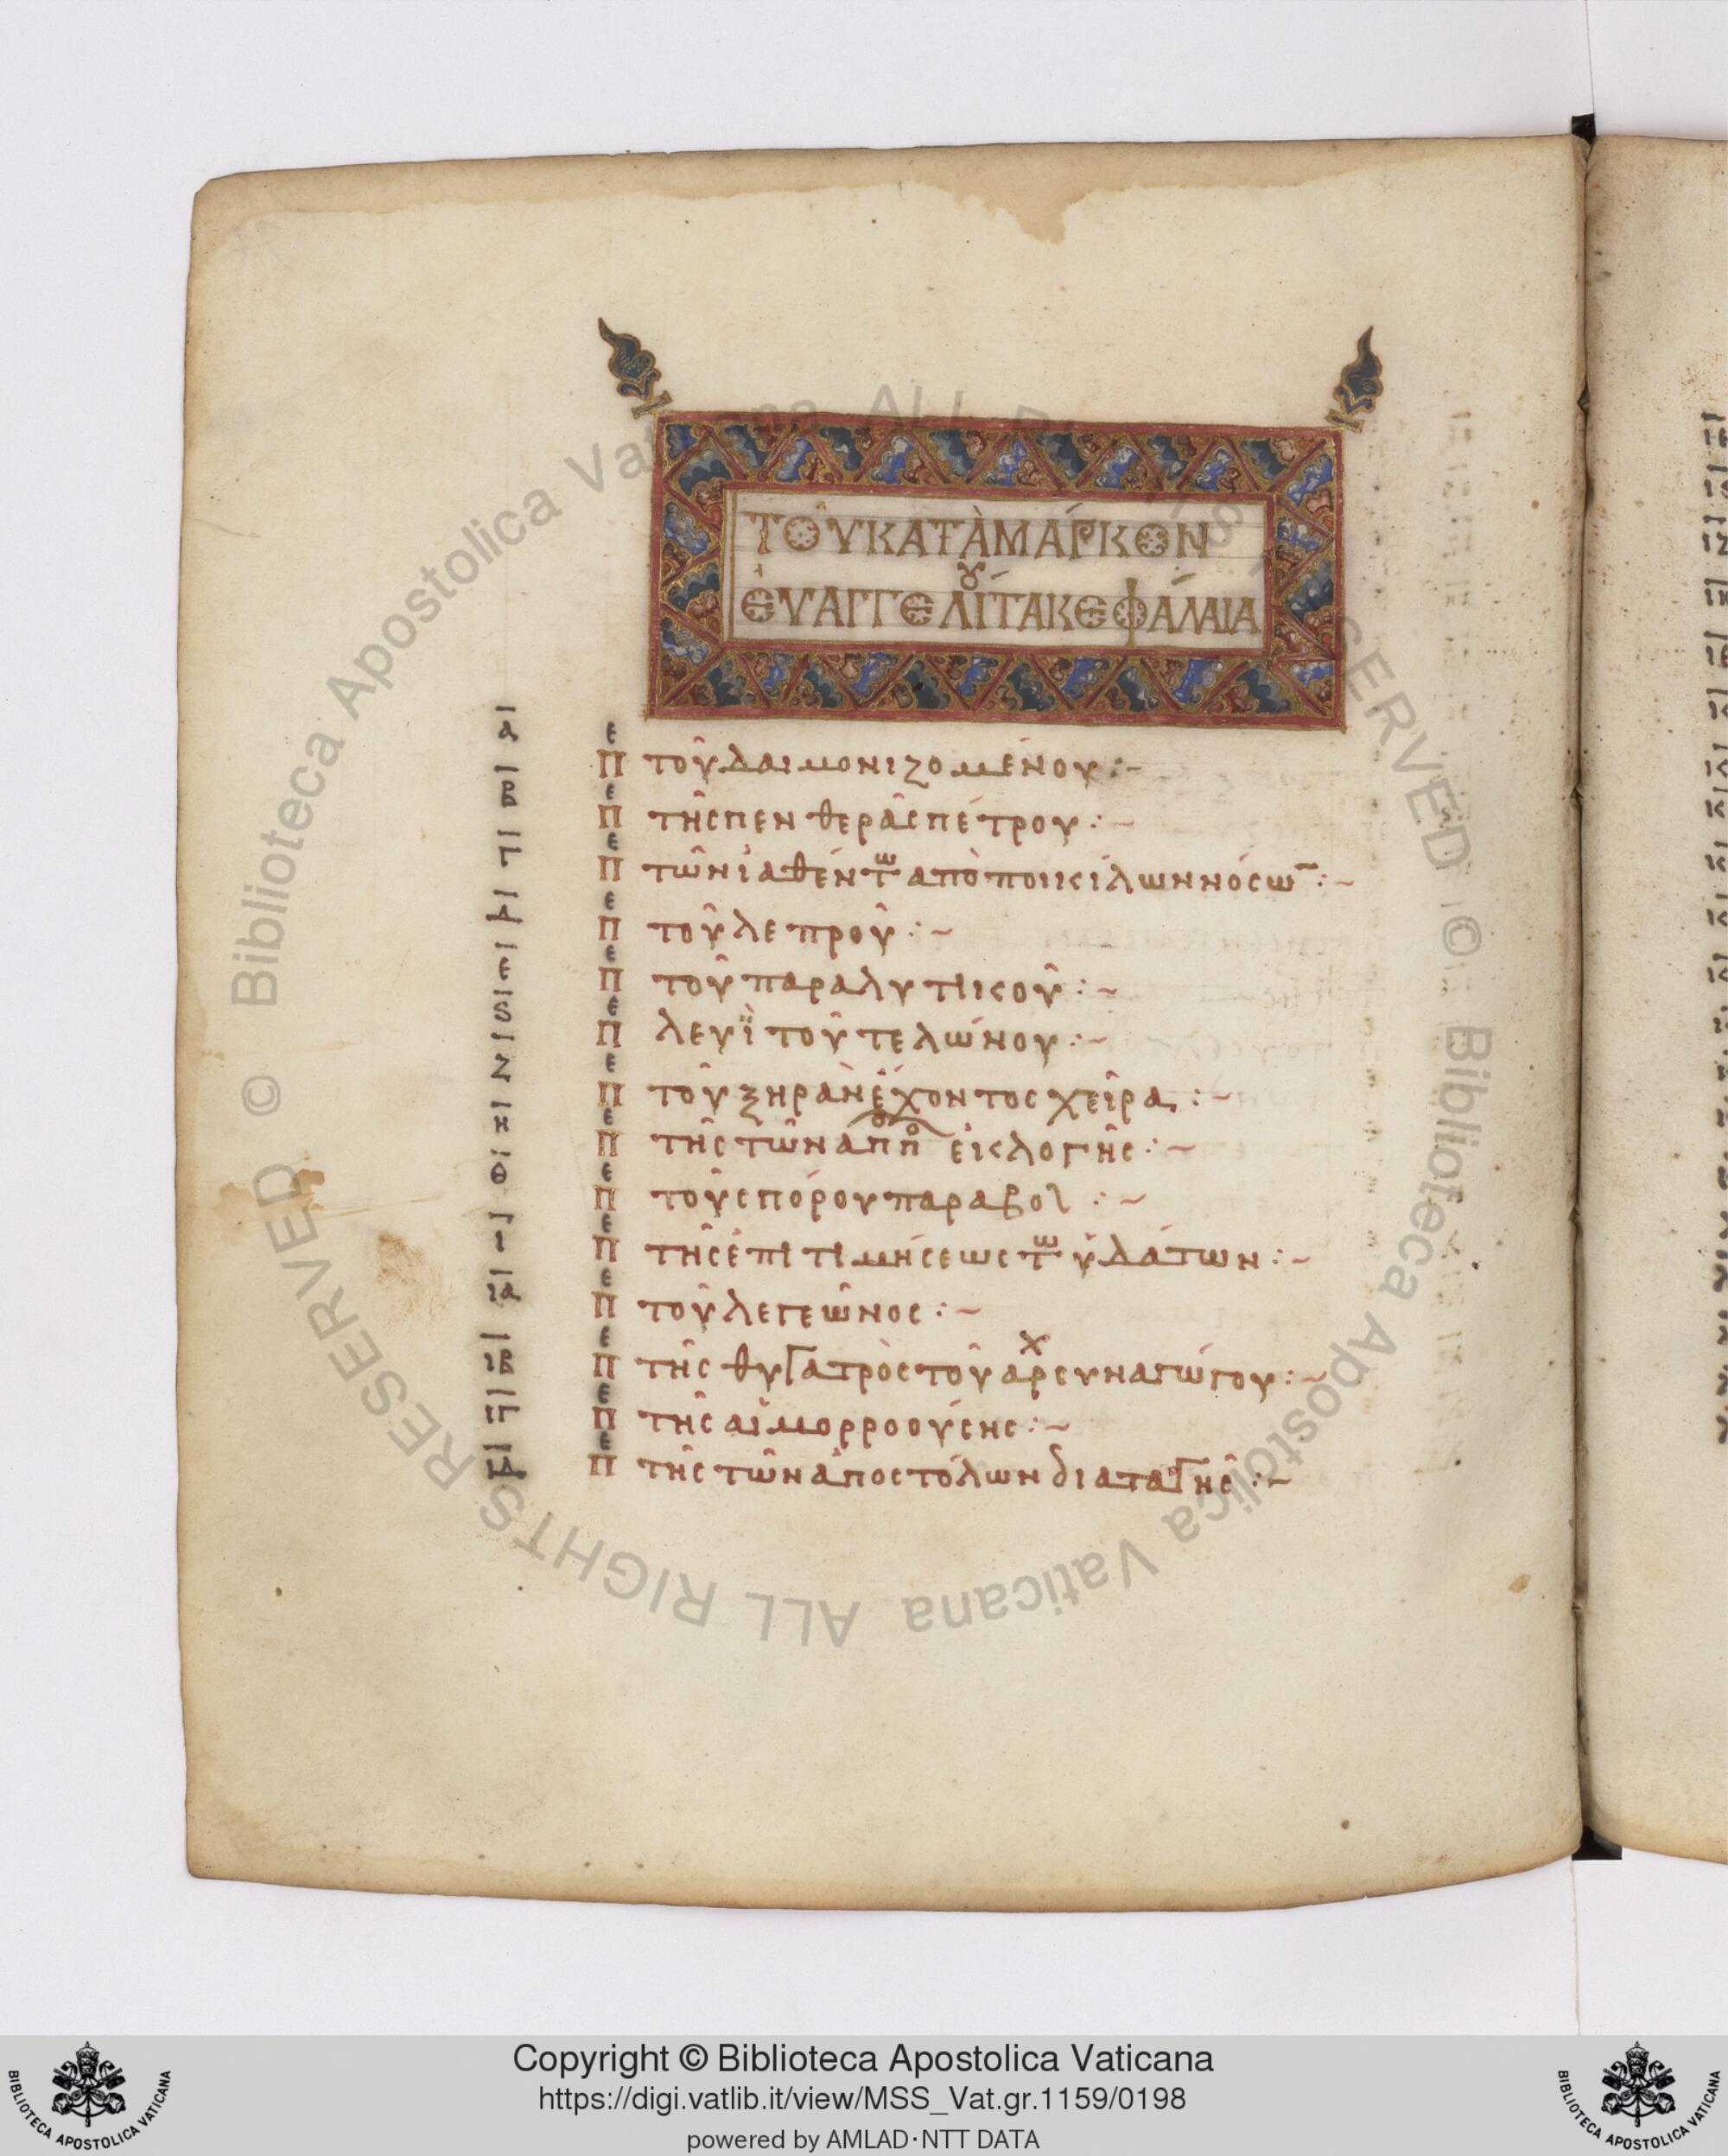 ΤΟΥ ΚΑΤᾺ ΜΆΡΚΟΝ
ΕΥΑΓΓΕΛΊΟΥ ΤΑ ΚΕΦΆΛΑΙΑ
α Πε τοῦ δαιμονιζομένου :~
β Πε τῆς πενθερᾶς πέτρου :~
γ Πε τῶν ἰαθέντων απὸ ποικίλων νόσω̅ :~
δ Πε τοῦ λεπροῦ :~
ε Πε τοῦ παραλυτικοῦ :~
ς Πε λευῒ τοῦ τελώνου :~
ζ Πε τοῦ ξηρὰν ἔχοντος χεῖρα :~
η Πε τῆς τῶν αποπο εκλογῆς :~
θ Πε τοῦ σπόρου παραβολ :~
ι Πε τῆς ἐπιτιμήσεως των ὑδάτων :~
ια Πε τοῦ λεγεῶνος :~
ιβ Πε τῆς θυγατρὸς τοῦ αρχσυναγώγου :~
ιγ Πε τῆς αἱμορροούσης :~
ιδ Πε τῆς τῶν ἀποστόλων διαταγῆς :~
© Biblioteca Apostolica Vaticana ALL RIGHTS RESERVED © Biblioteca Apostolica Vaticana ALL RIGHTS RESERVED
Copyright © Biblioteca Apostolica Vaticana
https://digi.vatlib.it/view/MSS_Vat.gr.1159/0198
powered by AMLAD·NTT DATA
BIBLIOTECA APOSTOLICA VATICANA
BIBLIOTECA APOSTOLICA VATICANA